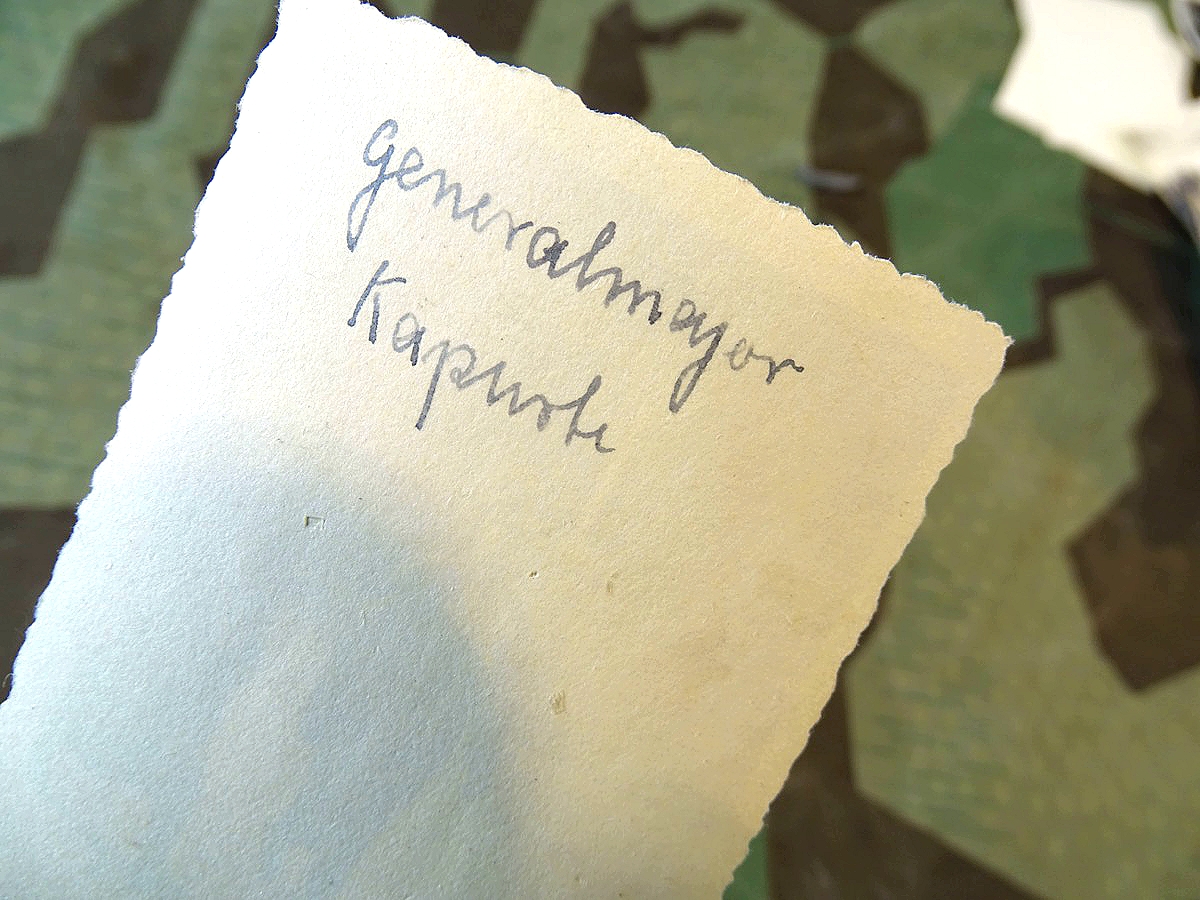 Generalmayor
Kapuste